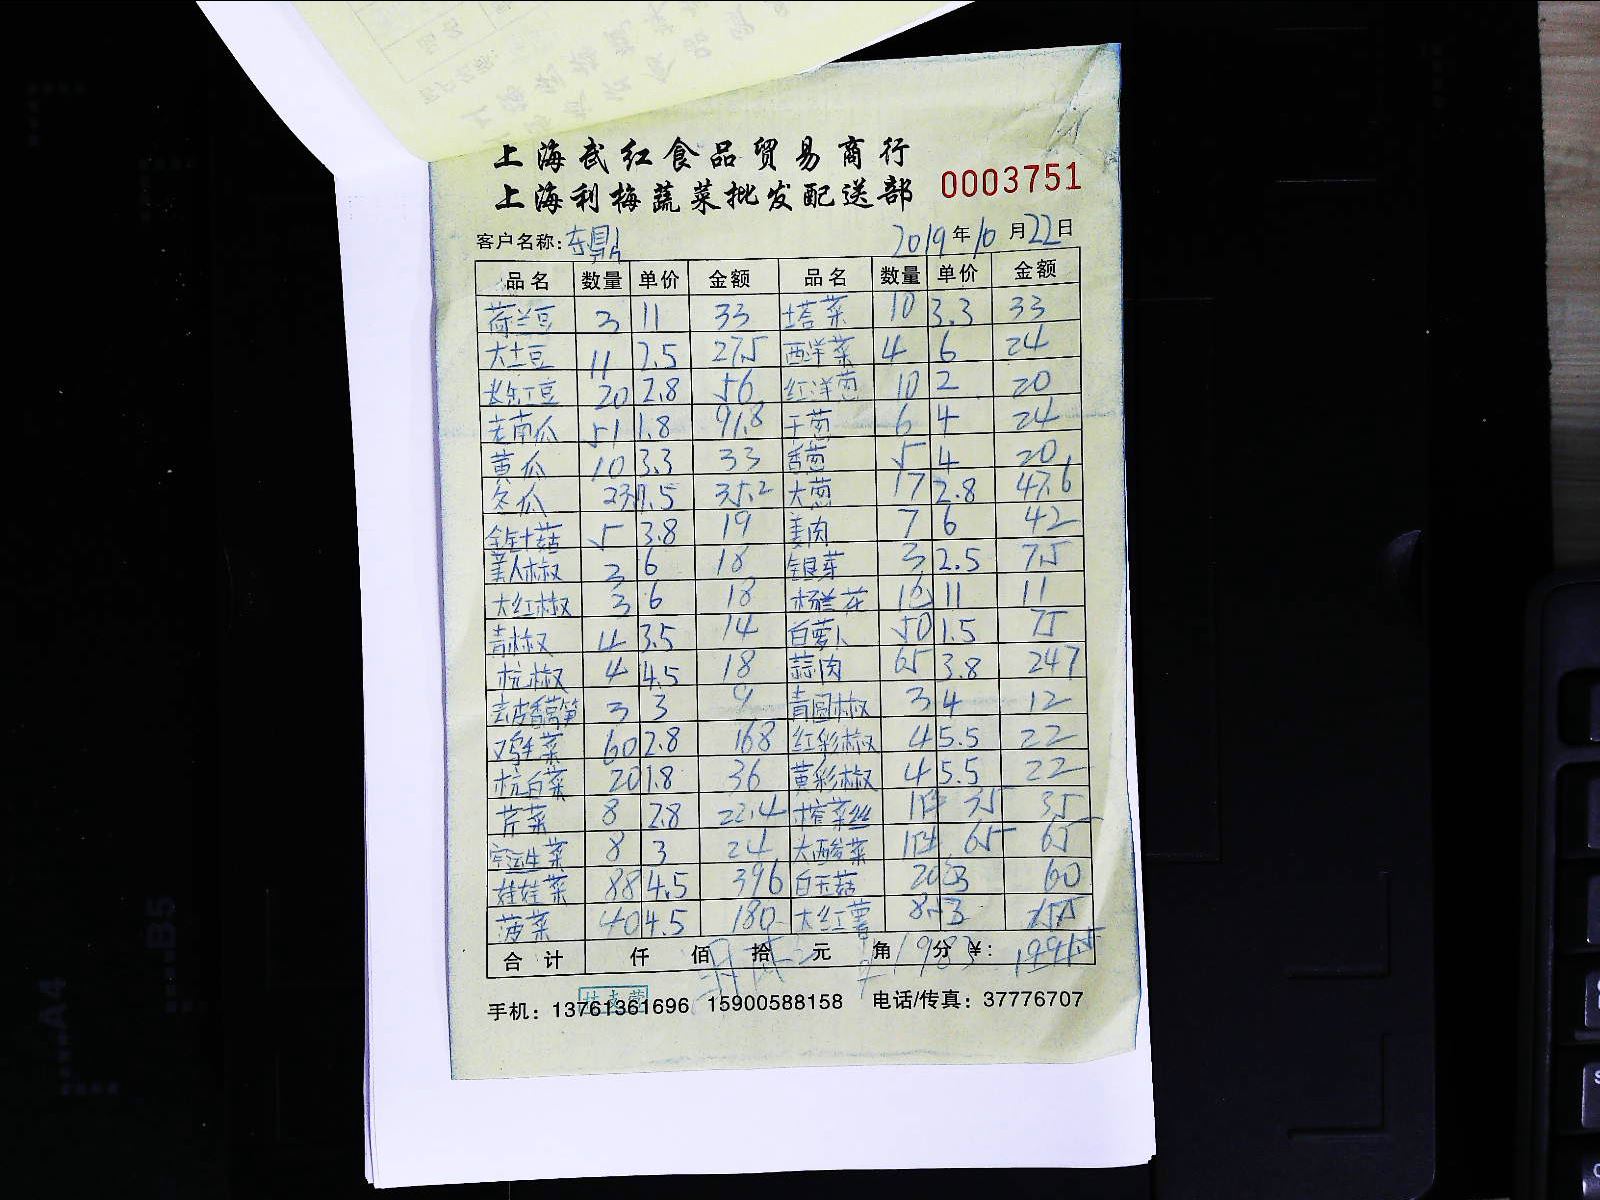 上海武红食品贸易商行
上海利梅蔬菜批发配送部 0003751
客户名称：东鼎 2019年10月22日
品名 数量 单价 金额 品名 数量 单价 金额
荷兰豆 3 11 33 塔菜 10 3.3 33
大土豆 11 2.5 27.5 西洋菜 4 6 24
长豇豆 20 2.8 56 红洋葱 10 2 20
老南瓜 51 1.8 91.8 干葱 6 4 24
黄瓜 10 3.3 33 香葱 5 4 20
冬瓜 1.5 35.2 大葱 17 2.8 47.6
金针菇 5 3.8 19 姜肉 7 6 42
美人椒 3 6 18 银芽 3 2.5 7.5
大红椒 3 6 18 杨兰花 11 11
青椒 4 3.5 14 白萝卜 50 1.5 75
杭椒 4 4.5 18 蒜肉 65 3.8 247
去皮香莴笋 3 3 9 青圆椒 3 4 12
鸡毛菜 60 2.8 168 红彩椒 4 5.5 22
杭白菜 20 1.8 36 黄彩椒 4 5.5 22
芹菜 8 2.8 22.4 榨菜丝 1件 35 35
生菜 8 3 24 大酸菜 1件 65 65
娃娃菜 88 4.5 396 白玉菇 20 3 60
菠菜 40 4.5 180 大红薯 3
合计 仟 佰 拾 元 角 分 ¥: 1983
手机：13761361696 15900588158 电话/传真：37776707